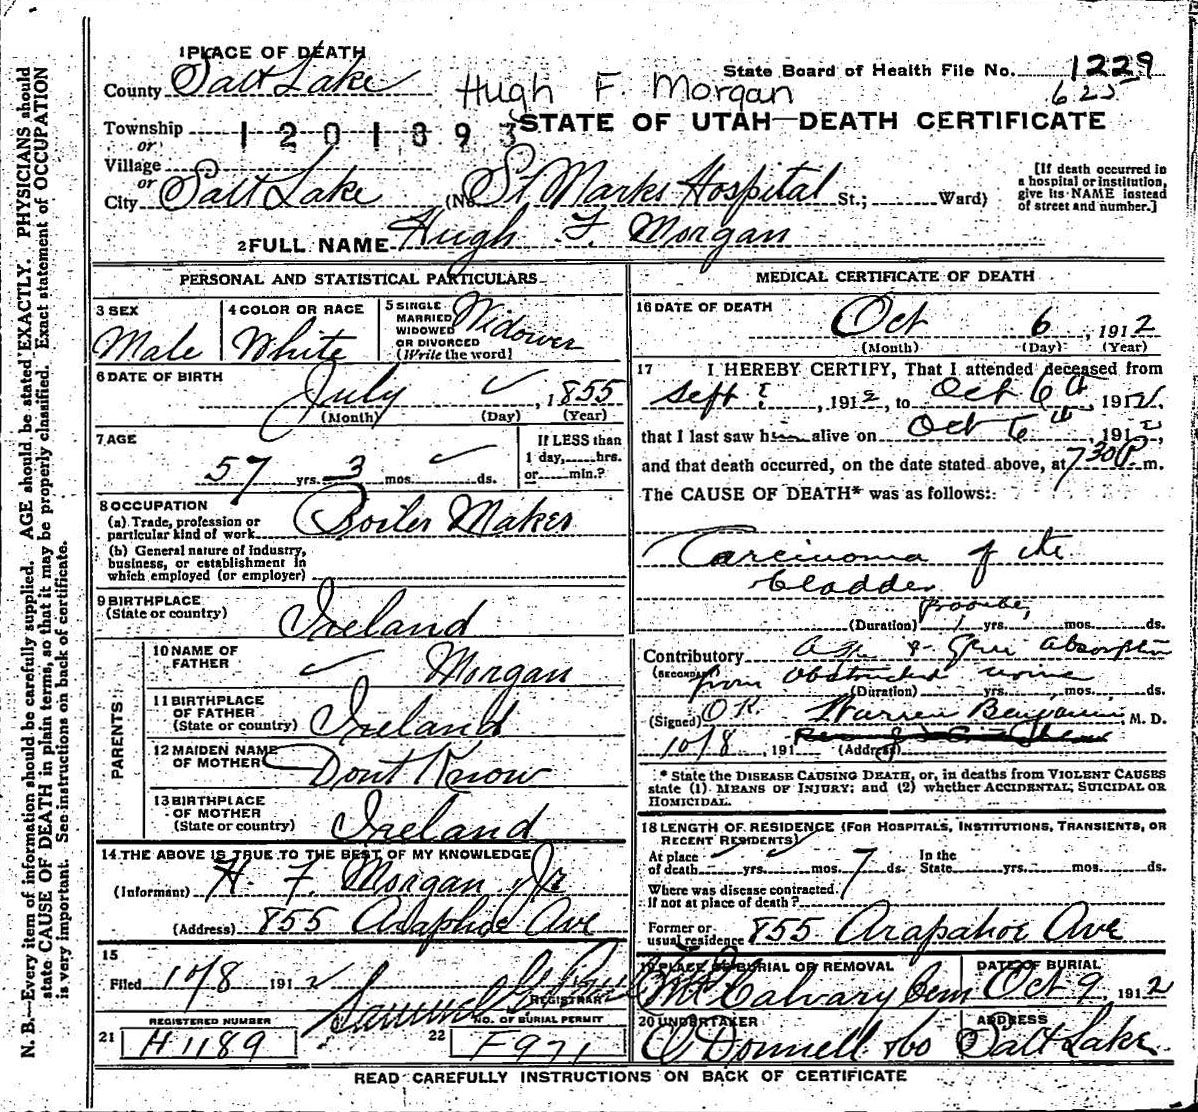 1 PLACE OF DEATH
County Salt Lake
Hugh F. Morgan
State Board of Health File No. 1229
625
Township 1201893
or
STATE OF UTAH—DEATH CERTIFICATE
Village
or
City Salt Lake (No. St Marks Hospital St.; Ward)
[If death occurred in a hospital or institution, give its NAME instead of street and number.]
2 FULL NAME Hugh F. Morgan
PERSONAL AND STATISTICAL PARTICULARS
3 SEX
Male
4 COLOR OR RACE
White
5 SINGLE MARRIED WIDOWED OR DIVORCED (Write the word)
Widower
6 DATE OF BIRTH
July ✓, 1855
(Month) (Day) (Year)
7 AGE
57 yrs. 3 mos. ✓ ds.
If LESS than 1 day, hrs. or min.?
8 OCCUPATION
(a) Trade, profession or particular kind of work Boiler Maker
(b) General nature of industry, business, or establishment in which employed (or employer)
9 BIRTHPLACE
(State or country) Ireland
PARENTS
10 NAME OF FATHER ✓ Morgan
11 BIRTHPLACE OF FATHER (State or country) Ireland
12 MAIDEN NAME OF MOTHER Dont Know
13 BIRTHPLACE OF MOTHER (State or country) Ireland
14 THE ABOVE IS TRUE TO THE BEST OF MY KNOWLEDGE
(Informant) H. F. Morgan Jr
(Address) 855 Araphoe Ave
15
Filed 10/8 1912 Samuel G.
REGISTRAR
REGISTERED NUMBER
21 H1189
NO. OF BURIAL PERMIT
22 F971
MEDICAL CERTIFICATE OF DEATH
16 DATE OF DEATH
Oct 6, 1912
(Month) (Day) (Year)
17 I HEREBY CERTIFY, That I attended deceased from
Sept ?, 1912, to Oct 6th, 1912,
that I last saw h alive on Oct 6th, 1912,
and that death occurred, on the date stated above, at 7 30 P. m.
The CAUSE OF DEATH* was as follows:
Carcinoma of the
bladder
(Duration) 1 yrs. mos. ds.
Contributory Age & absorption
(SECONDARY) from obstructed urine
(Duration) yrs. mos. ds.
(Signed) OK Warren Benjamin M. D.
10/8, 191 (Address)
* State the DISEASE CAUSING DEATH, or, in deaths from VIOLENT CAUSES
state (1) MEANS OF INJURY; and (2) whether ACCIDENTAL, SUICIDAL OR
HOMICIDAL.
18 LENGTH OF RESIDENCE (FOR HOSPITALS, INSTITUTIONS, TRANSIENTS, OR
RECENT RESIDENTS)
At place of death ✓ yrs. ✓ mos. 7 ds. In the State yrs. mos. ds.
Where was disease contracted, if not at place of death?
Former or usual residence 855 Arapahoe Ave
19 PLACE OF BURIAL OR REMOVAL
Mt Calvary Cem
DATE OF BURIAL
Oct 9, 1912
20 UNDERTAKER
O'Donnell & Co
ADDRESS
Salt Lake
READ CAREFULLY INSTRUCTIONS ON BACK OF CERTIFICATE
N. B.—Every item of information should be carefully supplied. AGE should be stated EXACTLY. PHYSICIANS should
state CAUSE OF DEATH in plain terms, so that it may be properly classified. Exact statement of OCCUPATION
is very important. See instructions on back of certificate.